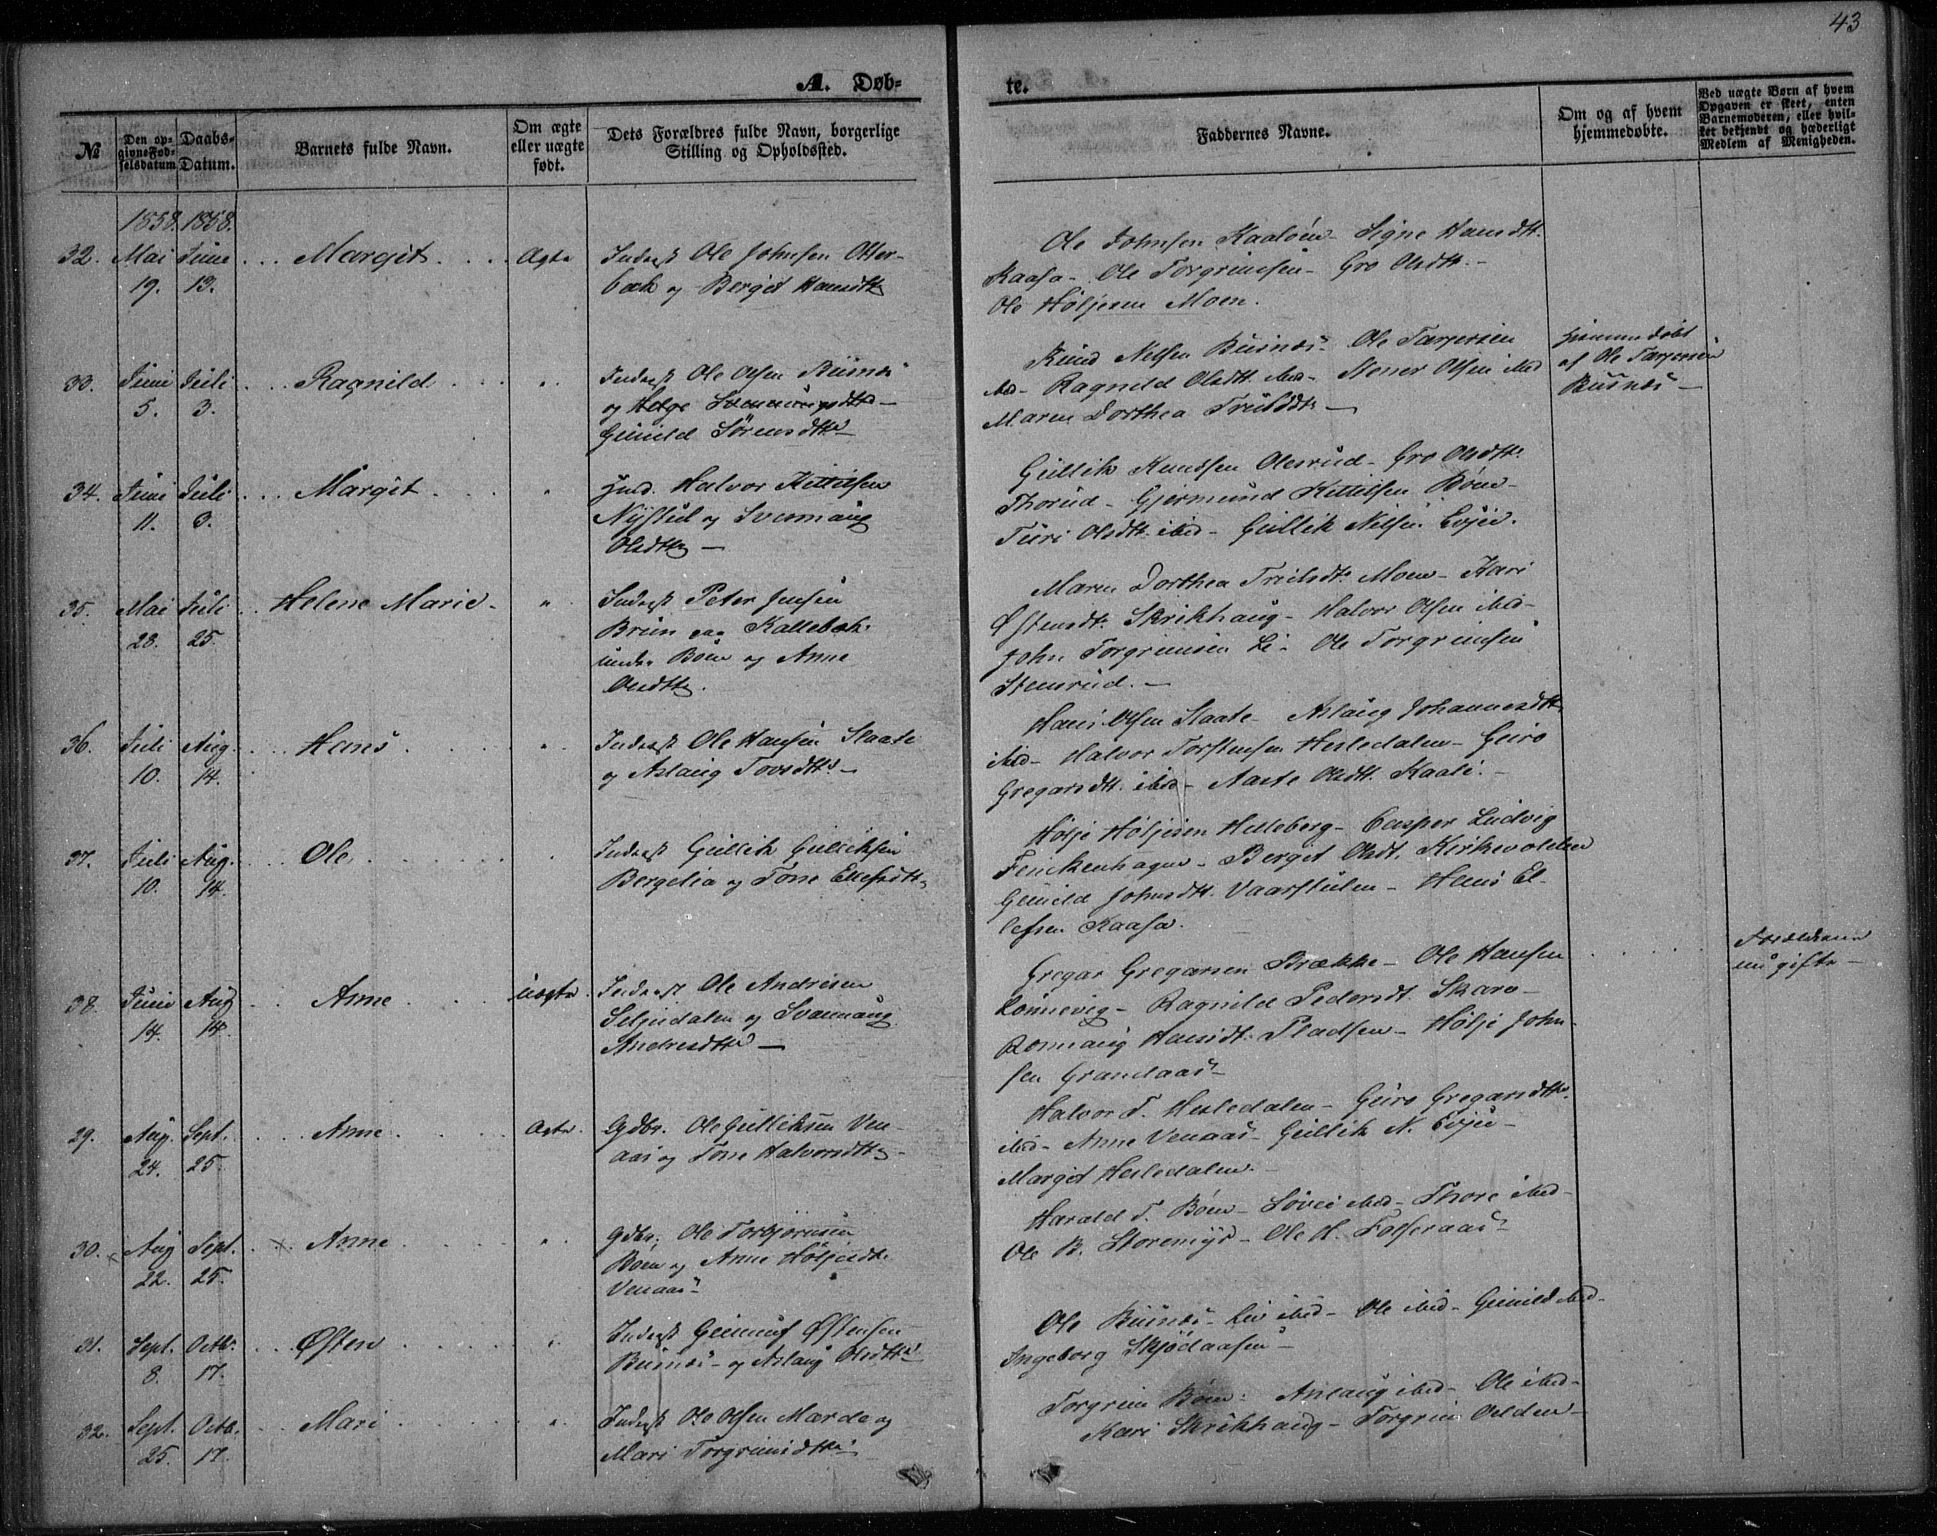 43
A. Døb-
te.
№
Den op-
givne Fød-
selsdatum
Daabs-
Datum.
Barnets fulde Navn.
Om ægte
eller uægte
født.
Dets Forældres fulde Navn, borgerlige
Stilling og Opholdssted.
Faddernes Navne.
Om og af hvem
hjemmedøbte.
Ved uægte Børn af hvem
Opgaven er skeet, enten
Barnemoderen, eller hvil-
ket bekjendt og hæderligt
Medlem af Menigheden.
1858. 1858.
32. Mai Juni Margit Ægte Inderst Ole Johnsen Otter-
19. 13. bæk og Bergit Hansdtr
Ole Johnsen Kaasøen - Signe Hansdtr.
Kaasa - Ole Torgrimsen - Gro Olsdtr. -
Ole Høljesen Moen.
33. Juni Juli Ragnild " Inderst Ole Olsen Busnæs
5. 3. og Helge
Gunild Sørensdtr -
Knud Nilsen Busnæs - Ole Tarjersen
ibid - Ragnild Olsdtr ibid - Stener Olsen ibid
Maren Dorthea Trulsdtr -
Hjemmedøbt
af Ole Tarjersen
Busnæs -
34. Juni Juli Margit " Ind. Halvor Kittilsen
11. 3. Nystul og Svanaug
Olsdtr -
Gullik Knudsen Olesrud - Gro Olsdtr.
Thorud - Gjermund Kittilsen Bøen -
Turi Olsdtr. ibid - Gullik Nilsen Evjen.
35. Mai Juli Helene Marie - " Inderst Peter Jensen
28. 25. Brun paa Kallebæk
under Bøen og Anne
Olsdtr.
Maren Dorthea Trulsdtr Moen - Kari
Østensdtr. Skrikhaug - Halvor Olsen ibid -
John Torgrimsen Li - Ole Torgrimsen
Stensrud. -
36. Juli Aug. Hans " Inderst Ole Hansen Slaate
10. 14. og Aslaug Tovsdtr -
Hans Olsen Slaate - Aslaug Johannesdtr.
ibid - Halvor Torstensen Hesledalen - Guro
Gregarsdtr. ibid - Aaste Olsdtr. Kaasi. -
37. Juli Aug. Ole " Inderst Gullik Gulliksen
10. 14. Bergelia og Tone Ellefsdtr
Hølje Høljesen Helleberg - Casper Ludvig
Finckenhagen - Berget Olsdtr. Kirkevolden
Gunild Johnsdtr. Vaarstulen - Hans El-
lefsen Kaasa.
38. Juni Aug Anne Uægte Inderst Ole Andresen
14. 14. Seljordalen og Svanaug
Andresdtr -
Gregar Gregarsen Brække - Ole Hansen
Rønnevig - Ragnild Pedersdt. Skare -
Rønnaug Hansdt. Pladsen - Hølje John-
sen Grandaas -
Forældrene
nu gifte -
29. Aug. Sept. Anne Ægte. Gdbr. Ole Gulliksen Ven-
24. 25. aas og Tone Halvorsdtr -
Halvor T. Hesledalen - Guro Gregarsdtr.
ibid - Anne Venaas - Gullik N. Evjen -
Margit Hesledalen. -
30. Aug Sept. Anne " Gdbr. Ole Torbjørnsen
22. 25. Bøen og Anne Høljesdtr
Venaas -
Harald T. Bøen - Løvei ibid - Thore ibid -
Ole B. Storemyr - Ole H. Folseraas -
31. Sept. Octbr. Østen " Inderst Gunnuf Østensen
8. 17. Busnæs - og Aslaug Olsdtr -
Ole Busnæs - Liv ibid - Ole ibid - Gunild ibid -
Ingeborg Skjødaasen -
32. Sept. Octb. Mari " Inderst Ole Olsen Mærde og
25. 17. Mari Torgrimsdtr.
Torgrim Bøen - Anlaug ibid - Ole ibid -
Kari Skrikhaug - Torgrim Oelden -